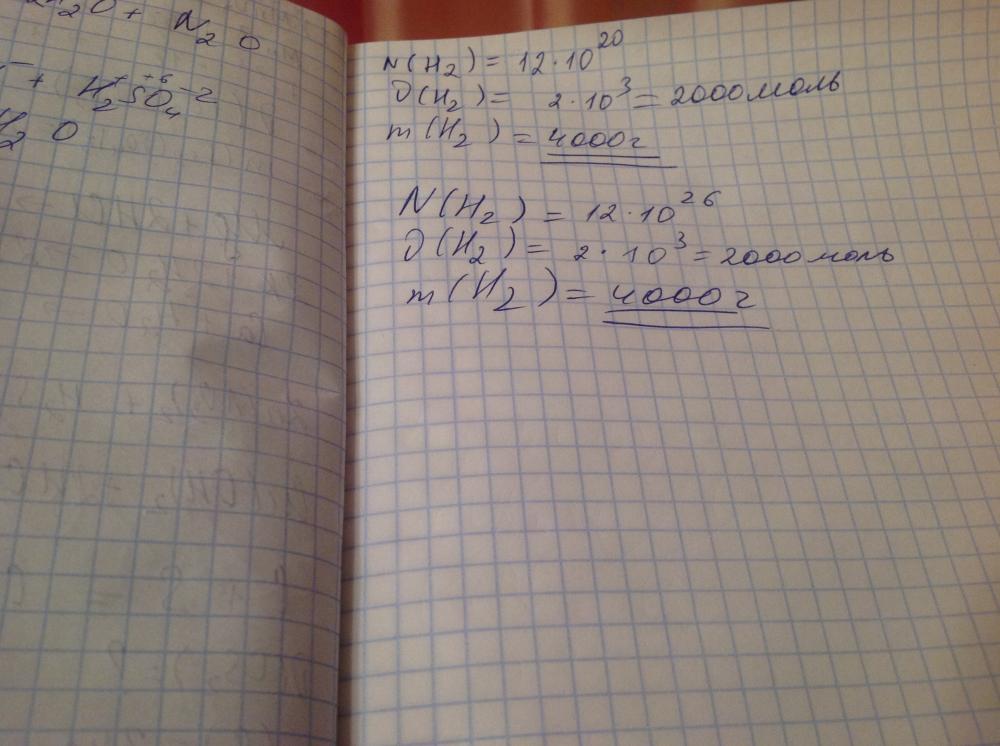 O + N₂O
+ H₂⁺S⁺⁶O₄⁻²
H₂O
N(H₂) = 12·10²⁰
ϑ(H₂) = 2·10³ = 2000 моль
m(H₂) = 4000г
N(H₂) = 12·10²⁶
ϑ(H₂) = 2·10³ = 2000 моль
m(H₂) = 4000г